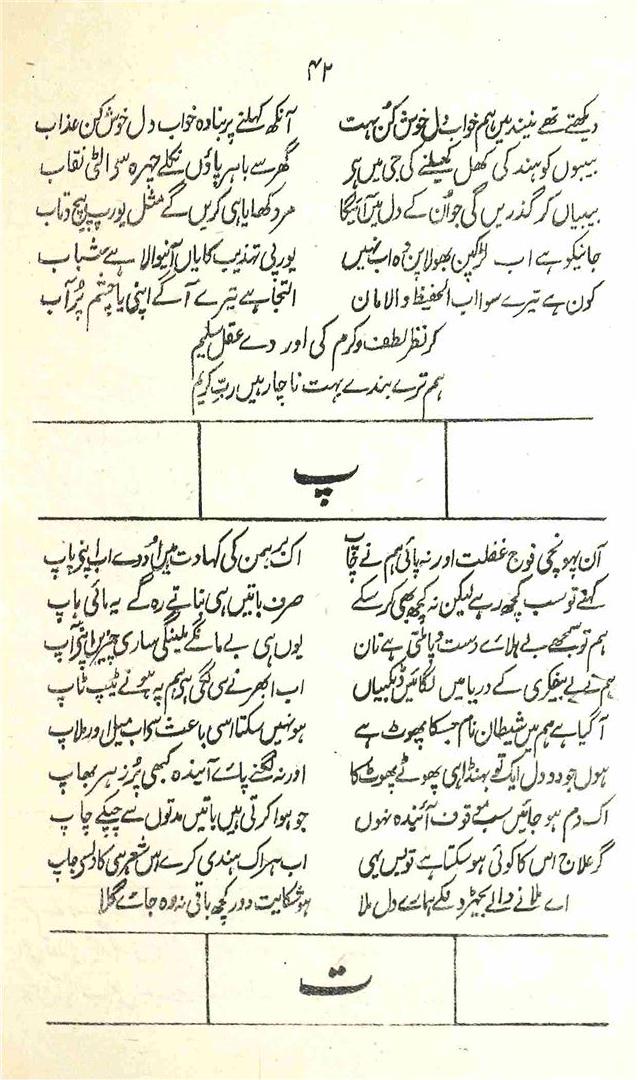 ۴۲
دیکھتے تھے نیند میں ہم خواب دل خوش کن بہت آنکھ کہلنے پر بنا دہ خواب دل خوش کن عذاب
بیبوں کو ہند کی کھل کھیلنے کی جی میں ہی گھر سے باہر پاؤں نکلے چہرہ سی الٹی نقاب
بیبیاں کر گذریں گی جو ان کے دل میں آئیگا مرد کھایا ہی کریں گے مثل یورپ پیچ وتاب
جانیکو ہے اب لڑکپن بھولا پن وہ اب نہیں یورپی تہذیب کا یاں آنیوالا ہے شباب
کون ہے تیرے سوا اب الحفیظ والامان التجا ہے تیرے آگے اپنی با چشم پُر آب
کر نظر لطف وکرم کی اور دے عقل سلیم
ہم ترے بندے بہت ناچار ہیں ربِّ کریم
پ
آن پہونچی فوج غفلت اور نہ پائی ہم نے چاپ اک برہمن کی کہاوت میں اُودرے اب اپنی پاپ
کہنے تو سب کچھ رہے لیکن نہ کچھ بھی کر سکے صرف باتیں ہی بناتے رہ گے یہ مائی باپ
ہم تو سمجھے بے ہلاے دست وپا ملتی ہے نان یوں ہی بے مانگے ملینگی ہماری چیزیں اپنی آپ
ہم نے بے فکری کے دریا میں لگائیں ڈبکیاں اب ابھرنے سی لگی ہی ہم پہ ہونے ٹیپ ٹاپ
آ گیا ہے ہم میں شیطان نام جسکا پھوٹ ہے ہو نہیں سکتا اسی باعث سی اب میل اور ملاپ
ہوں جو دو دل ایک تو بھنڈا ہی پھوٹے پھوٹ کا اور نہ لگنے پاے آیندہ کبھی پُر زہر بھاپ
اک دم ہو جائیں سب موقوف آئندہ نہوں جو ہوا کرتی ہیں باتیں مدتوں سے چپکے چاپ
گر علاج اس کا کوئی ہو سکتا ہے تو بس یہی اب ہر اک ہندی کرے اس شعر ہی کا دل سی جاپ
اے ملانے والے بچھڑوں کے ہمارے دل ملا ہو شکایت دور کچھ باقی نہ رہ جاے گلا
ت